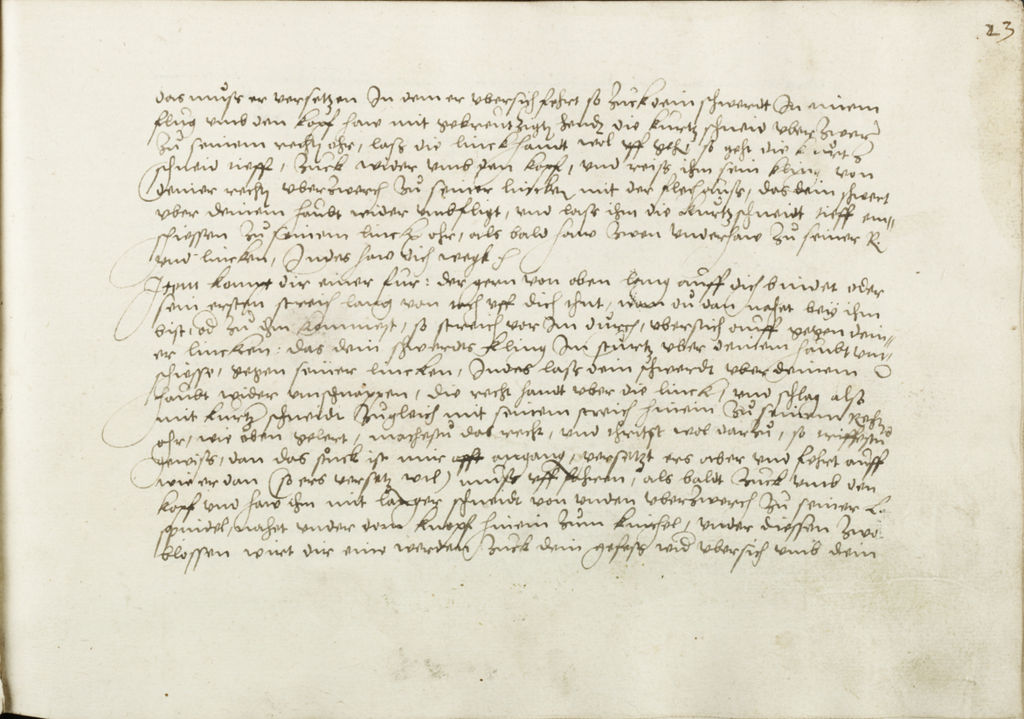 23
das muss er versetzen In dem er vbersich fehrt so zuck dein schwerdt In einem
flug vmb den kopf haw mit gekreutzigtz hendz die kurtz schneid vberzwerch
zu seinem rechtz ohr, lass die linck handt wol vff gehn so geht die kurtz
schneid tieff, zuck wider vmb den kopf, vnd reiss ihm sein kling von
deiner rechtz vberzwerch zu seiner lincken mit der flech auss, das dein schwert
vber deinem haubt wider vmbfligt, vnd lass ihm die kurtz schneidt tieff ein-
schiessen zu seinem lincken ohr, als bald haw zwen vnderhaw zu seiner R
vnd lincken, Indes haw dich wegk
Item kompt dir einer fur: der gern von oben lang auff dich bindet oder
sein ersten streich lang von tach vff dich thut, wan du dan nahet bey ihm
bist, od zu ihm kommest, so streich vor Im durch, vbersich auff gegen dein-
er lincken: das dein schwerdts kling Im sturtz vber deinem haubt vm-
schiesse, gegen seiner lincken, Indes lass dein schwerdt vber deinem
haubt wider vmschnappen, die recht handt vber die linck, vnd schlag also
mit kurtz schneidt zugleich mit seinem streich hinein zu seinem Rechtz
ohr, wie oben gelert, machestu das recht, vnd thritst wol darzu, so triffestu
gewiss, dan das stuck ist nur angang, versetzt ers aber vnd fehrt auff
wie er dan (so ers versetz wil) muss vff fahren, als baldt zuck vmb den
kopf vnd haw ihm mit langer schneidt von vnden vberzwerch zu seiner L.
spindel, nahet vnder dem knopf hinein zum knichel, vnder diessen zwo
blossen wirt dir eine werden zuck dein gefess wid vbersich vmb dein